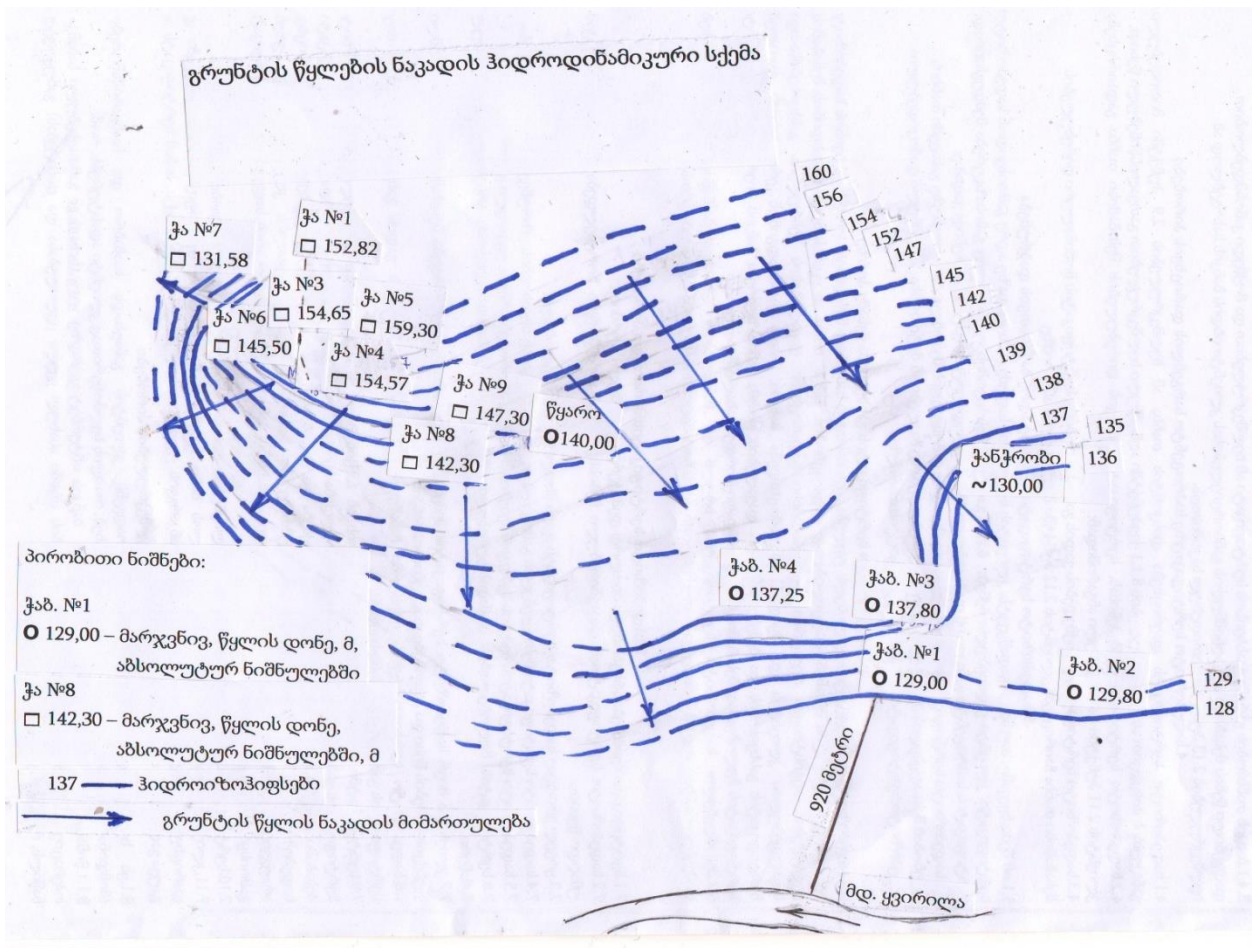 გრუნტის წყლების ნაკადის ჰიდროდინამიკური სქემა
160
156
154
152
147
145
142
140
139
138
137
135
136
129
128
ჭა №7
131,58
ჭა №1
152,82
ჭა №3
154,65
ჭა №5
159,30
ჭა №6
145,50
ჭა №4
154,57
ჭა №9
147,30
წყარო
140,00
ჭა №8
142,30
ჭანჭრობი
~130,00
ჭაბ. №4
137,25
ჭაბ. №3
137,80
ჭაბ. №1
129,00
ჭაბ. №2
129,80
პირობითი ნიშნები:
ჭაბ. №1
129,00 – მარჯვნივ, წყლის დონე, მ,
აბსოლუტურ ნიშნულებში
ჭა №8
142,30 – მარჯვნივ, წყლის დონე,
აბსოლუტურ ნიშნულებში, მ
137 ჰიდროიზოჰიფსები
გრუნტის წყლის ნაკადის მიმართულება
920 მეტრი
მდ. ყვირილა